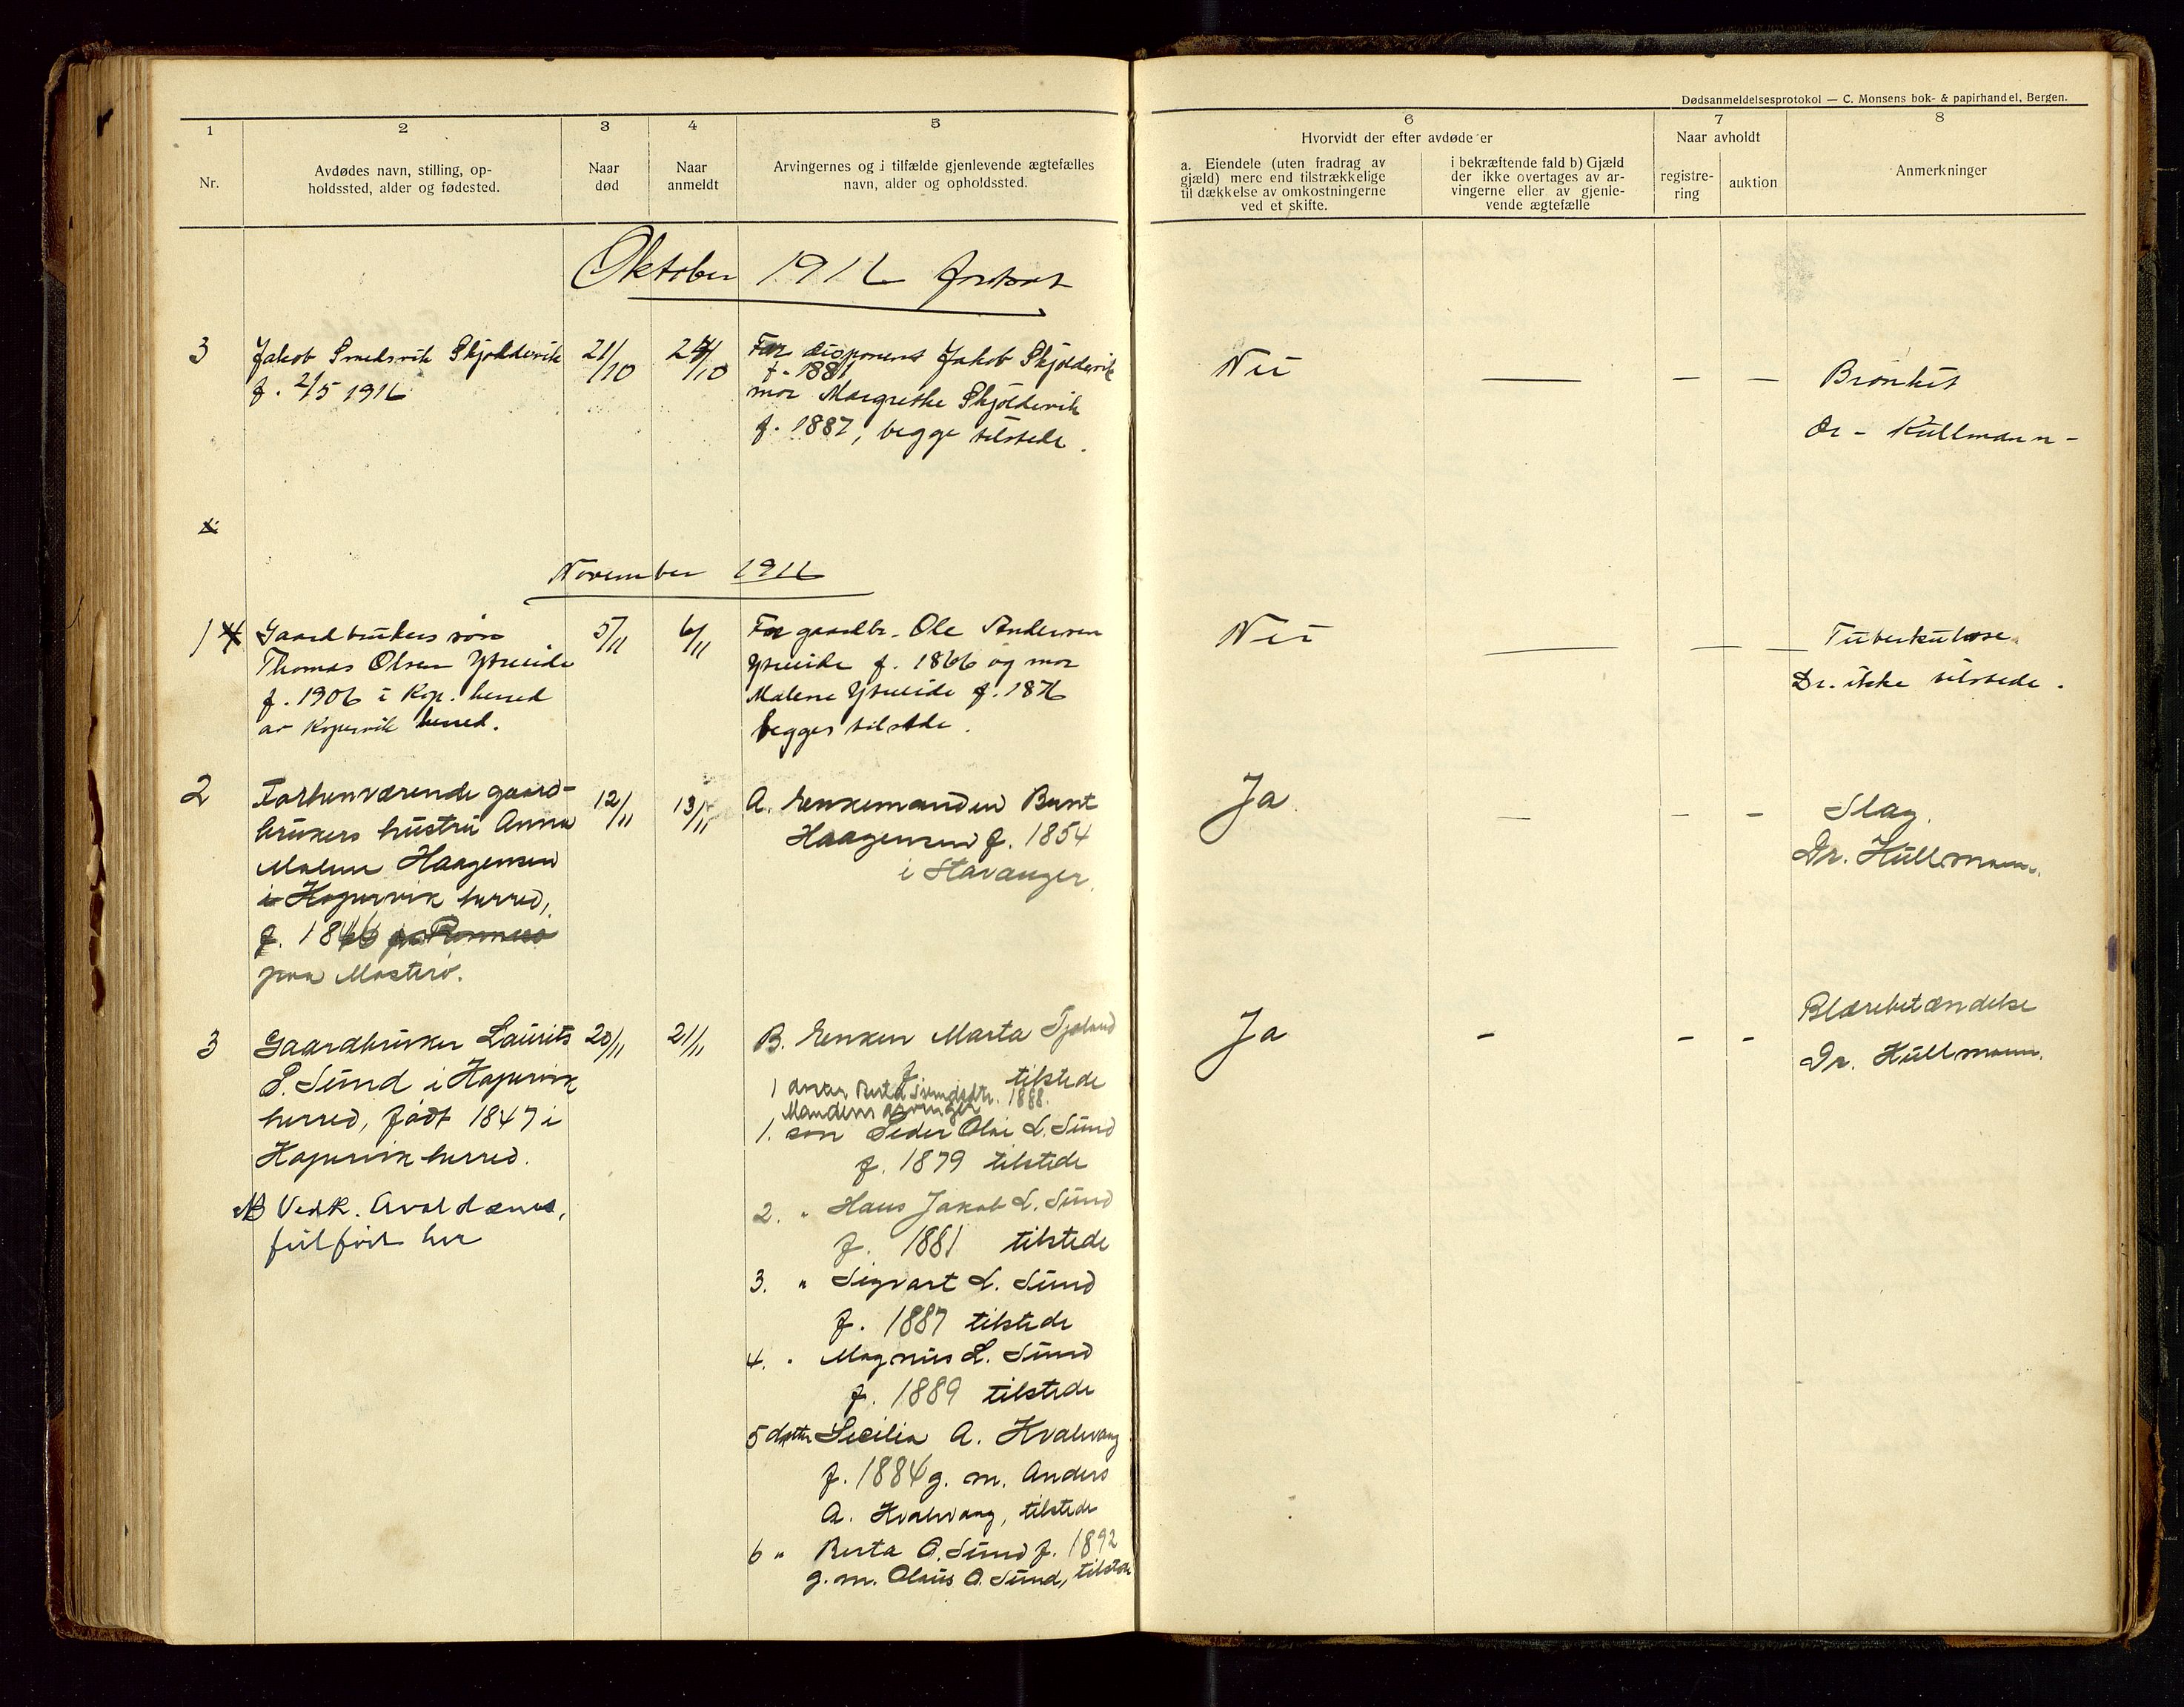 Dødsanmeldelsesprotokol — C. Monsens bok- & papirhandel, Bergen.
1
2
3
4
5
6
7
8
Nr.
Avdødes navn, stilling, op-
holdssted, alder og fødested.
Naar
død
Naar
anmeldt
Arvingernes og i tilfælde gjenlevende ægtefælles
navn, alder og opholdssted.
Hvorvidt der efter avdøde er
a. Eiendele (uten fradrag av
gjæld) mere end tilstrækkelige
til dækkelse av omkostningerne
ved et skifte.
i bekræftende fald b) Gjæld
der ikke overtages av ar-
vingerne eller av gjenle-
vende ægtefælle
Naar avholdt
registre-
ring
auktion
Anmerkninger
Oktober 1916 fortsat
3
Jakob Smedsvik Skjoldevik
f. 2/5 1916
21/10
24/10
Far disponent Jakob Skjoldevik
f. 1881
mor Margrethe Skjoldevik
f. 1887, begge tilstede.
Nei
— — —
Bronkit
Dr - Küllmann -
November 1916
1
Gaardbrukers søn
Thomas Olsen Ytreeide
f. 1906 i Kop. herred
av Kopervik herred.
5/11
6/11
Far gaardbr. Ole Andersen
Ytreeide f. 1866 og mor
Malene Ytreeide f. 1876
begges tilstede.
Nei
— — —
Tuberkulose
Dr. ikke tilstede.
2
Forhenværende gaard-
brukers hustru Anna
Malene Haagensen
i Kopervik herred,
f. 1846
paa Mosterø.
12/11
13/11
A. Enkemanden Bernt
Haagensen f. 1854
i Stavanger.
Ja
— — —
Slag.
Dr. Küllmann.
3
Gaardbruker Laurits
P. Sund i Kopervik
herred, født 1847 i
Kopervik herred.
NB Vedk. Avaldsnes,
feilført her
20/11
21/11
B. Enken Marta
f. tilstede
1 datter Berta 1888.
Mandens arvinger
1. søn Peder Olai L. Sund
f. 1879 tilstede
2. " Hans Jakob L. Sund
f. 1881 tilstede
3. " Sigvart L. Sund
f. 1887 tilstede
4. " Magnus L. Sund
f. 1889 tilstede
5 datter Secilia A. Kvalevaag
f. 1884 g. m. Anders
A. Kvalevaag, tilstede
6 " Berta O. Sund f. 1892
g. m. Olaus O. Sund, tilstede
Ja
- - -
Blærebetændelse
Dr. Küllmann.